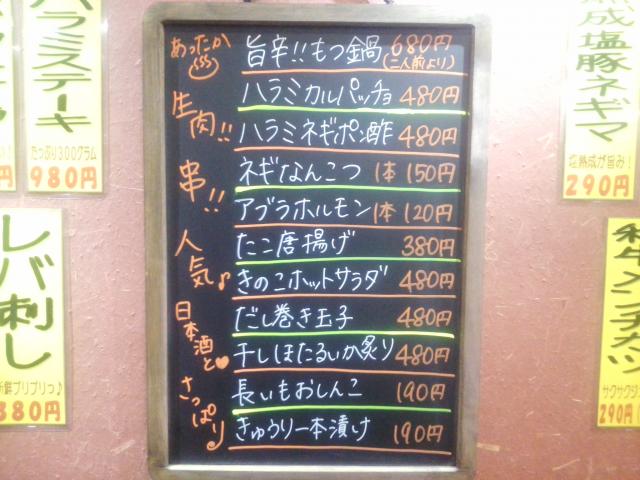 ハラミステーキ
たっぷり300グラム
980円
レバ刺し
新鮮プリプリっ♪
380円
あったか
旨辛!!もつ鍋 680円
(二人前より)
生肉!!
ハラミカルパッチョ 480円
ハラミネギポン酢 480円
串!!
ネギなんこつ 1本 150円
アブラホルモン 1本 120円
人気♪
たこ唐揚げ 380円
きのこホットサラダ 480円
だし巻き玉子 480円
日本酒と♥
干しほたるいか炙り 480円
さっぱり
長いもおしんこ 190円
きゅうり一本漬け 190円
熟成塩豚ネギマ
塩熟成が旨み!
290円
和牛メンチカツ
サクサクジ
290円